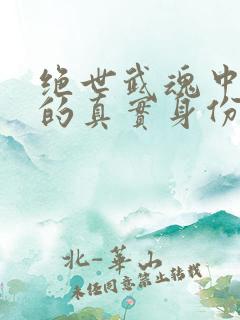 绝世武魂中
的真實身份
北-華山
未经同意禁止转载